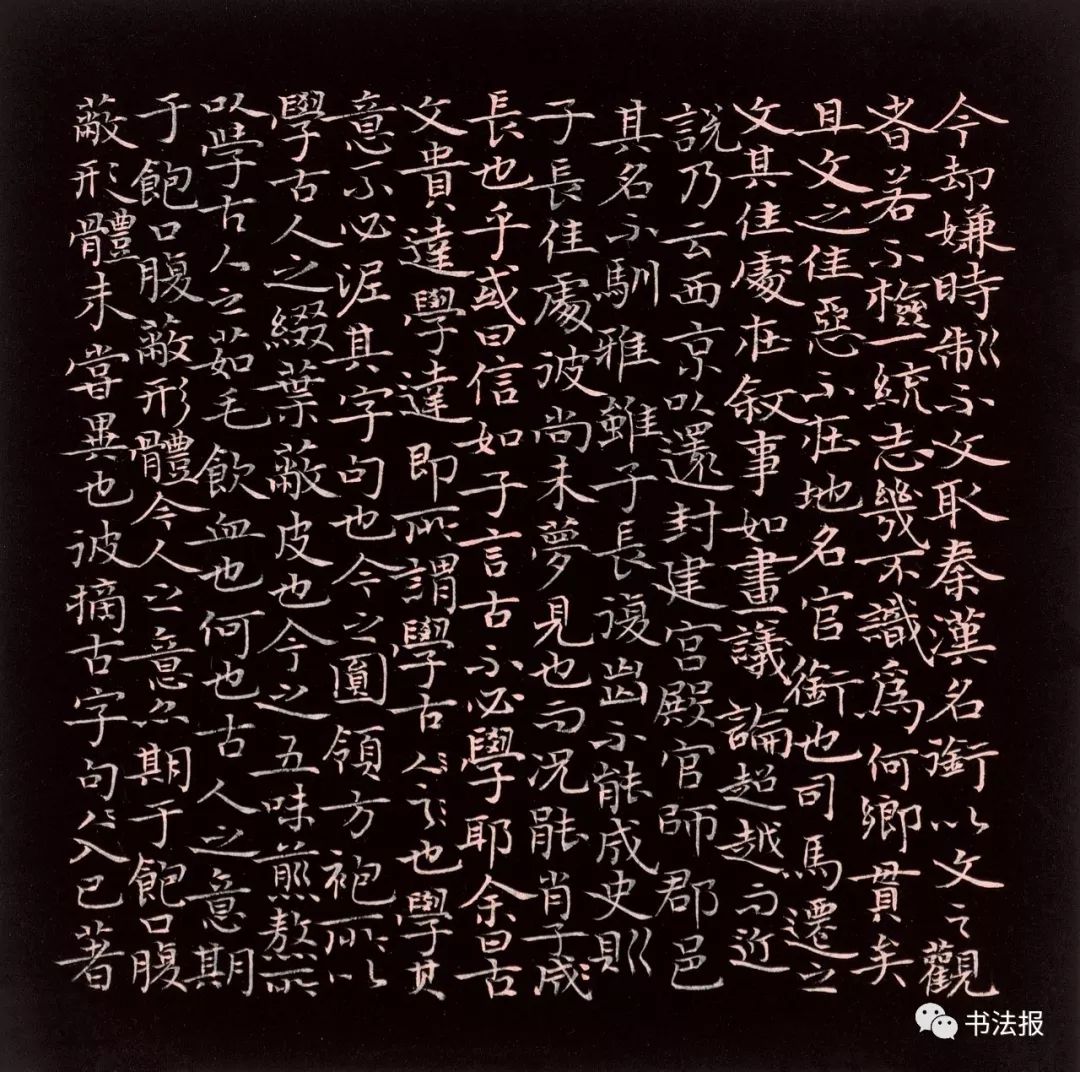 今却嫌時制不文取秦漢名銜以文之觀
者若不檢一統志幾不識爲何鄉貫矣
且文之佳惡不在地名官銜也司馬遷之
文其佳處在叙事如畫議論超越而近
說乃云西京以還封建宮殿官師郡邑
其名不馴雅雖子長復齒不能成史則
子長佳處彼尚未夢見也而况能肖子成
長也乎或曰信如子言古不必學耶余曰古
文貴達學達即所謂學古人之也學其
意不必泥其字句也今之圓領方袍所以
學古人之綴葉蔽皮也今之五味煎熬所
以學古人之茹毛飲血也何也古人之意期
于飽口腹蔽形體今人之意亦期于飽口腹
蔽形體未嘗異也彼摘古字句人入已著
书法报